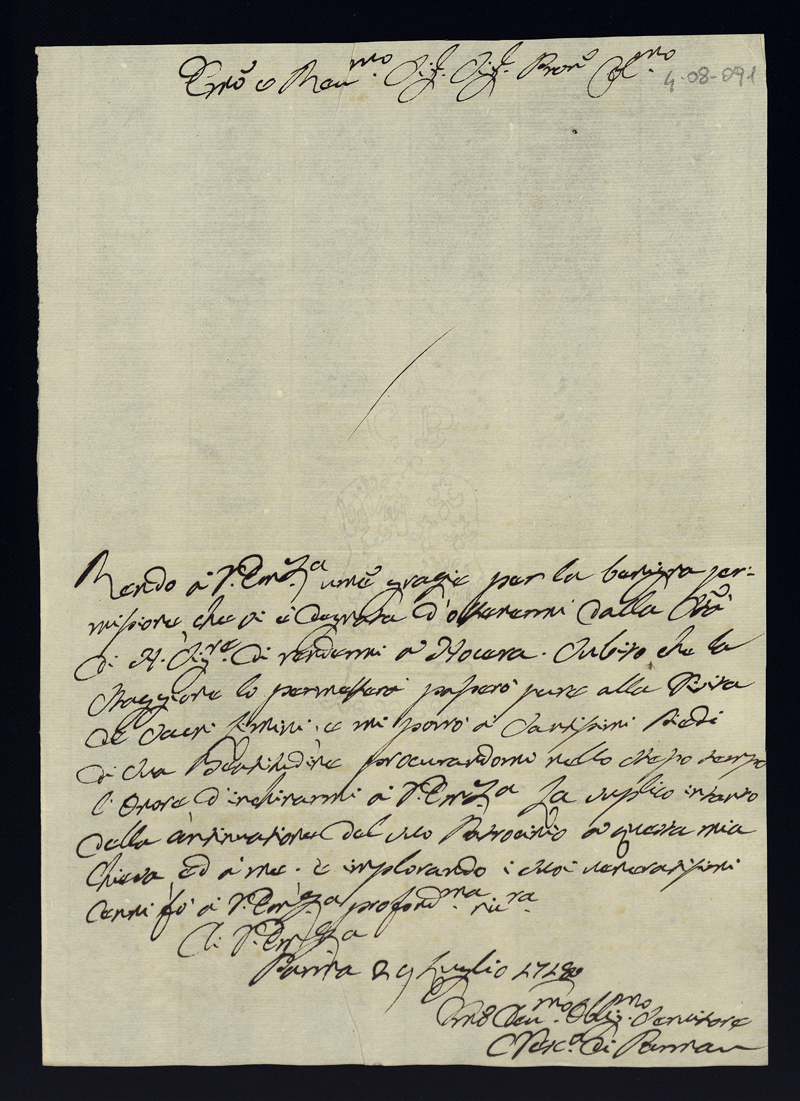 Emo e Reu.mo Sig.r Sig.r Pron Col.mo
4-08-091
C B
Rendo à V. Emza ume grazie per la benigna per=
missione che si è degnata d'ottenermi dalla Stà
di N. Sig.re di rendermi a Nocera. Subito che la
Staggione lo permetterà passerò pure alla Visita
de Sacri Limini, e mi porrò a Santissimi Piedi
di Sua Beatitudine procurandomi nello stesso tempo
l'Onore d'inchinarmi à V. Emza La suplico intanto
della continuatione del suo Patrocinio a questa mia
Chiesa ed à me. e implorando i suoi veneratissimi
Cenni fò à V. Emza profond.ma riu.ra
Di V. Emza
Parma 29 Luglio
Umo Deu.mo Oblig.mo Servitore
Vesc.o di Parma